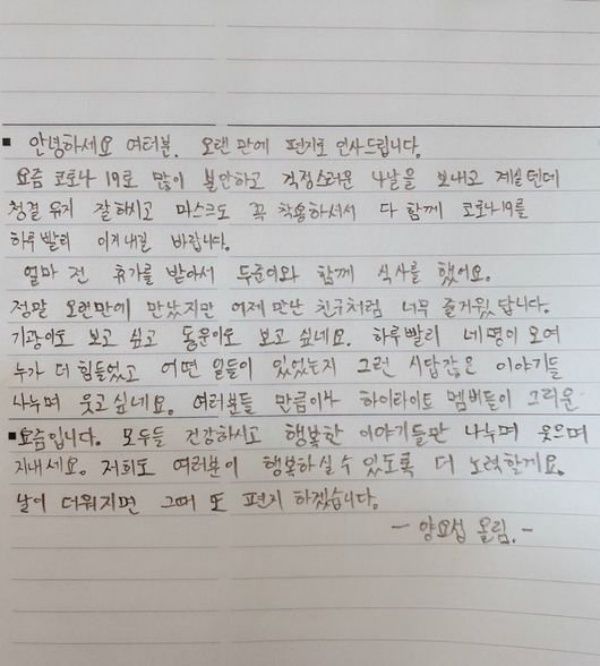 안녕하세요 여러분. 오랜 만에 편지로 인사드립니다.
요즘 코로나 19로 많이 불안하고 걱정스러운 나날을 보내고 계실텐데
청결 유지 잘 하시고 마스크도 꼭 착용하셔서 다 함께 코로나19를
하루빨리 이겨내길 바랍니다.
얼마 전 휴가를 받아서 두준이와 함께 식사를 했어요.
정말 오랜만에 만났지만 어제 만난 친구처럼 너무 즐거웠답니다.
기광이도 보고 싶고 동운이도 보고 싶네요. 하루빨리 네명이 모여
누가 더 힘들었고 어떤 일들이 있었는지 그런 시답잖은 이야기들
나누며 웃고 싶네요. 여러분들 만큼이나 하이라이트 멤버들이 그리운
요즘입니다. 모두들 건강하시고 행복한 이야기들만 나누며 웃으며
지내세요. 저희도 여러분이 행복하실 수 있도록 더 노력할게요.
날이 더워지면 그때 또 편지 하겠습니다.
- 양요섭 올림. -